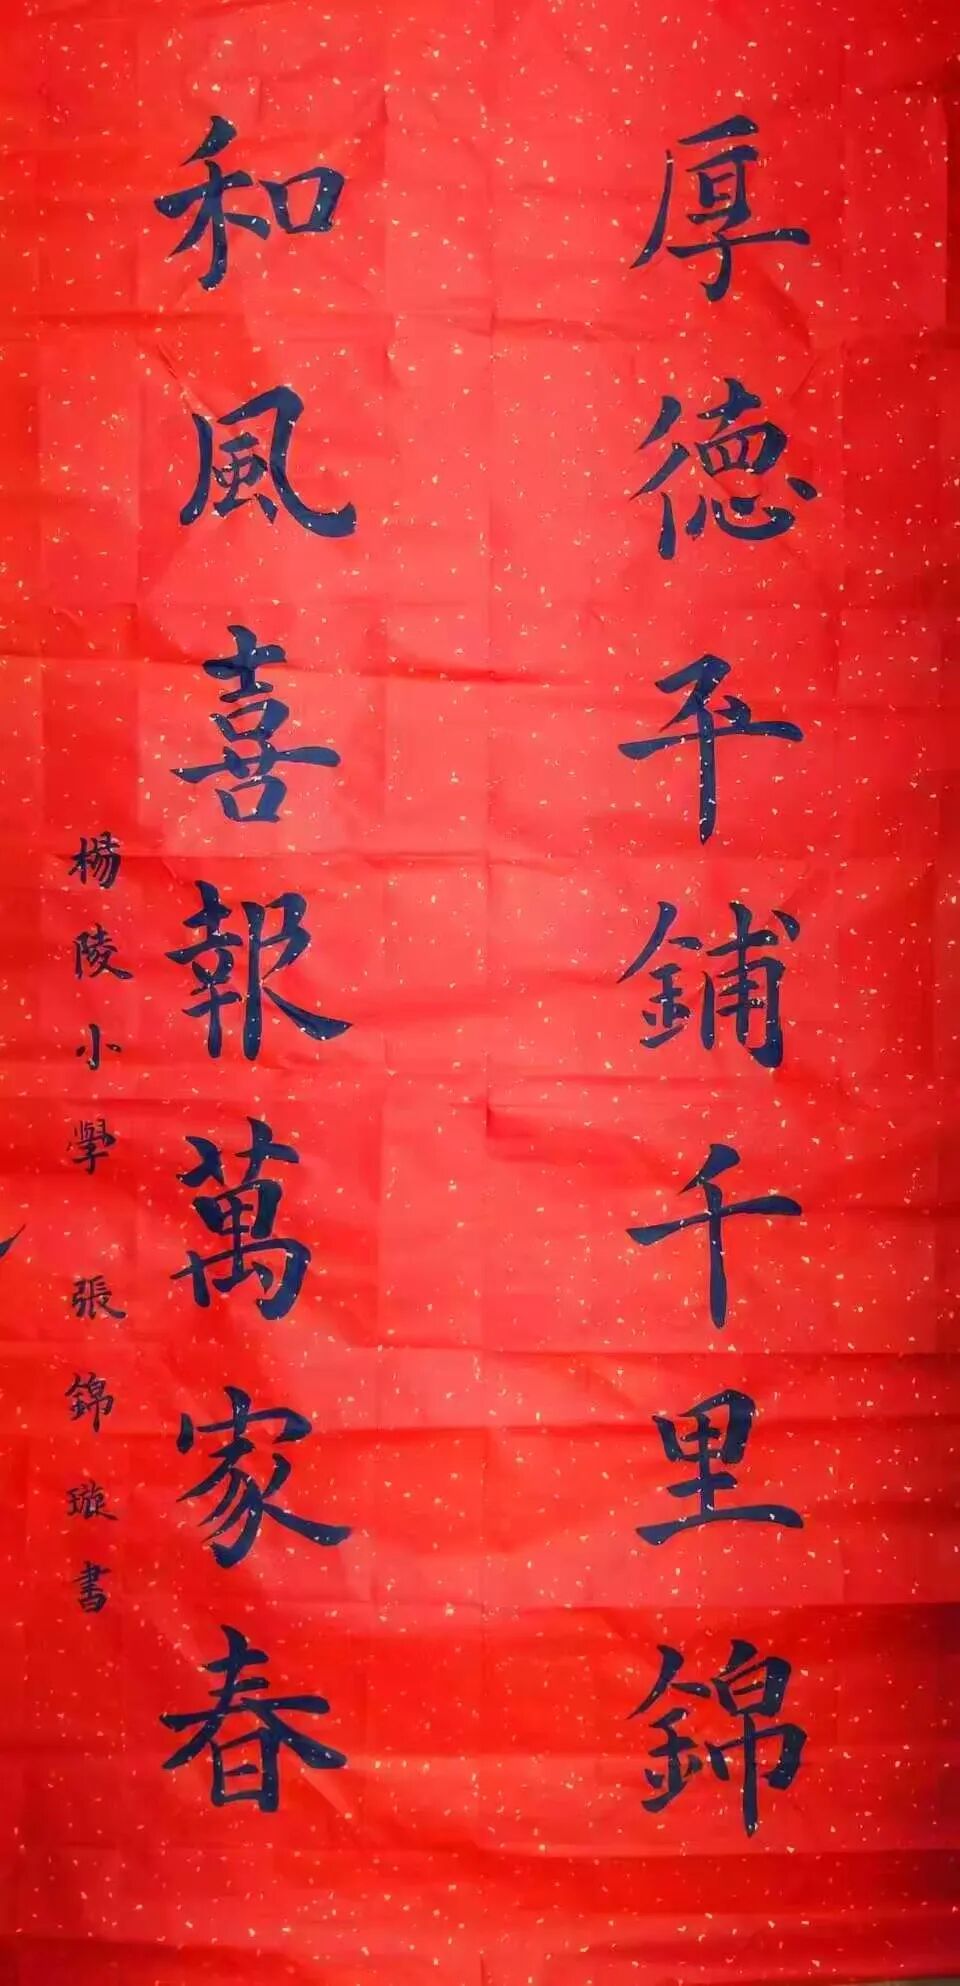 厚德平鋪千里錦
和風喜報萬家春
楊陵小學 張錦璇書